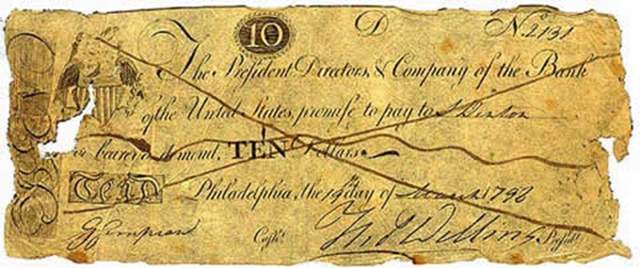 10 D No 2131
The President Directors & Company of the Bank
of the United States, promise to pay to
or bearer on demand, TEN Dollars.
TEN Philadelphia, the day of 1798
Cashr. Thos Willing Presidt.